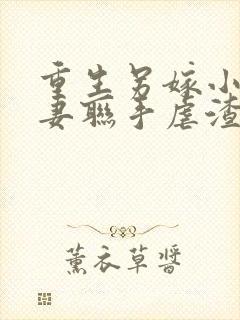 重生另嫁小
妻聯手虐渣
薰衣草醬